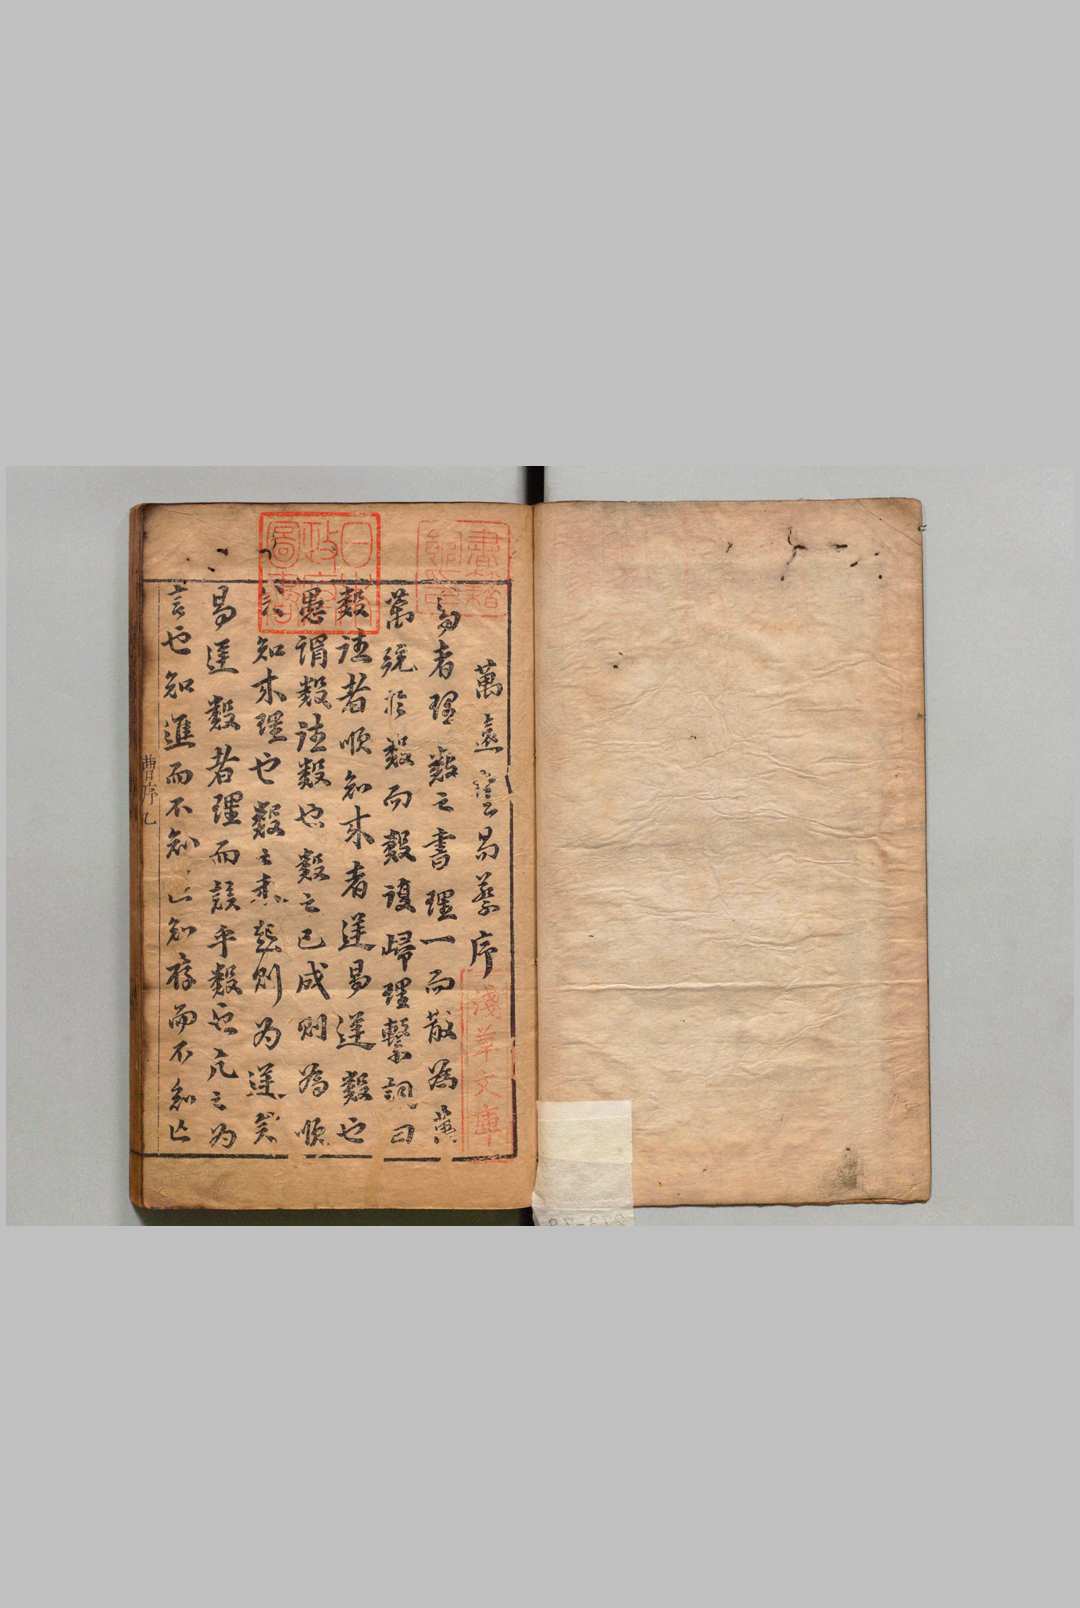 萬遠堂易蔡序
易者理數之書理一而散為萬
萬統於數而數復歸理繫詞曰
數往者順知來者逆易逆數也
愚謂數往數也數之已成則為順
知來理也數之未起則為逆矣
易逆數者理而該乎數也亢之為
言也知進而不知亡知存而不知亡
曹序 乙
日本政府圖書
書籍館印
淺草文庫